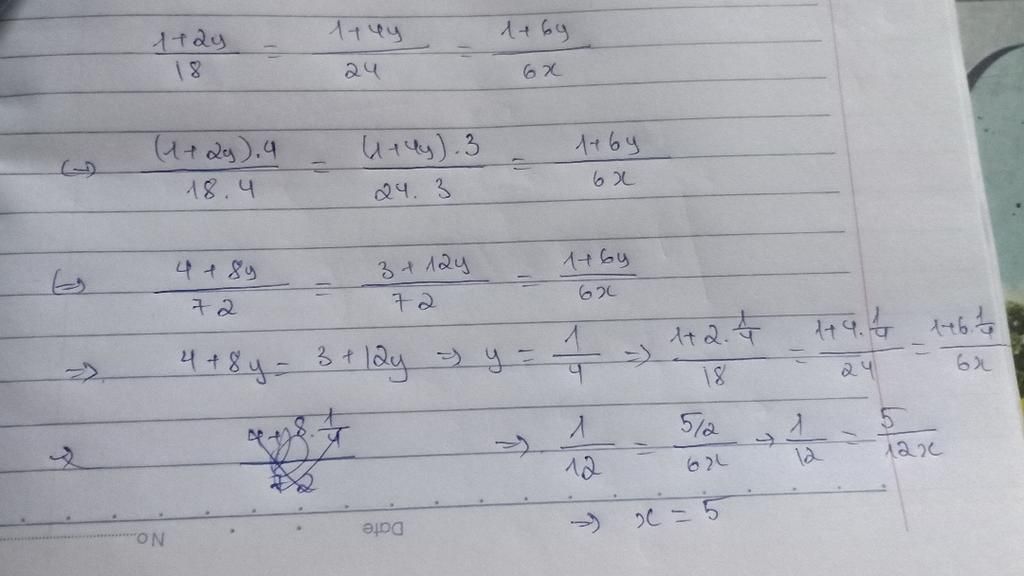 (1+2y)/18 = (1+4y)/24 = (1+6y)/6x
(=) ((1+2y).4)/(18.4) = ((1+4y).3)/(24.3) = (1+6y)/6x
(=) (4+8y)/72 = (3+12y)/72 = (1+6y)/6x
=> 4+8y = 3+12y => y = 1/4 => (1+2.1/4)/18 = (1+4.1/4)/24 = (1+6.1/4)/6x
=> 1/12 = (5/2)/6x → 1/12 = 5/12x
=> x = 5
No. Date